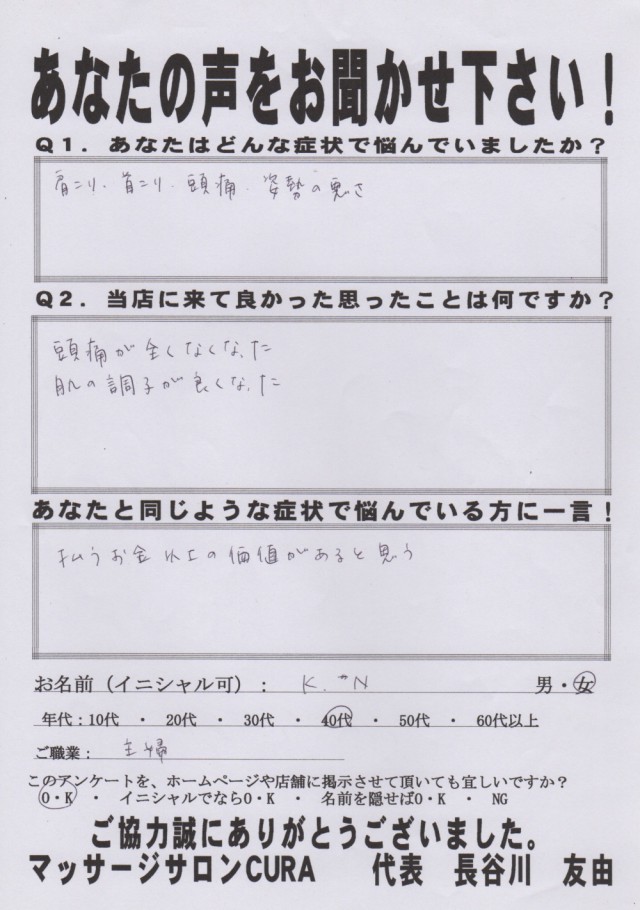 あなたの声をお聞かせ下さい！
Q１．あなたはどんな症状で悩んでいましたか？
肩こり・首こり・頭痛・姿勢の悪さ
Q２．当店に来て良かった思ったことは何ですか？
頭痛が全くなくなった
肌の調子が良くなった
あなたと同じような症状で悩んでいる方に一言！
払うお金以上の価値があると思う
お名前（イニシャル可）： K. N 男・女
年代：10代 ・ 20代 ・ 30代 ・ 40代 ・ 50代 ・ 60代以上
ご職業： 主婦
このアンケートを、ホームページや店舗に掲示させて頂いても宜しいですか？
O・K ・ イニシャルでならO・K ・ 名前を隠せばO・K ・ NG
ご協力誠にありがとうございました。
マッサージサロンCURA 代表 長谷川 友由